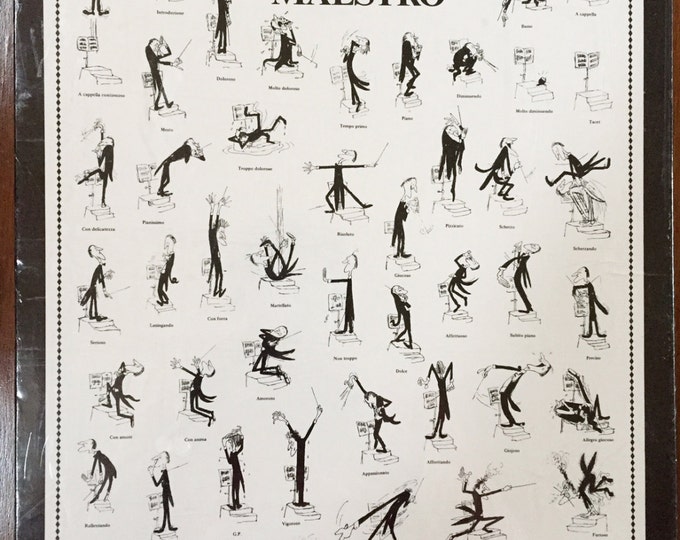 MAESTRO
Introduzione
Buono
A cappella
A cappella continuano
Mesto
Doloroso
Molto doloroso
Tempo primo
Piano
Diminuendo
Molto diminuendo
Tacet
Con delicatezza
Pianissimo
Troppo doloroso
Risoluto
Giocoso
Pizzicato
Scherzo
Scherzando
Sereno
Lusingando
Con forza
Martellato
Non troppo
Dolce
Affettuoso
Subito piano
Con amore
Con anima
Amoroso
Appassionato
Affrettando
Allegro giocoso
Rallentando
G.P.
Vigoroso
Furioso